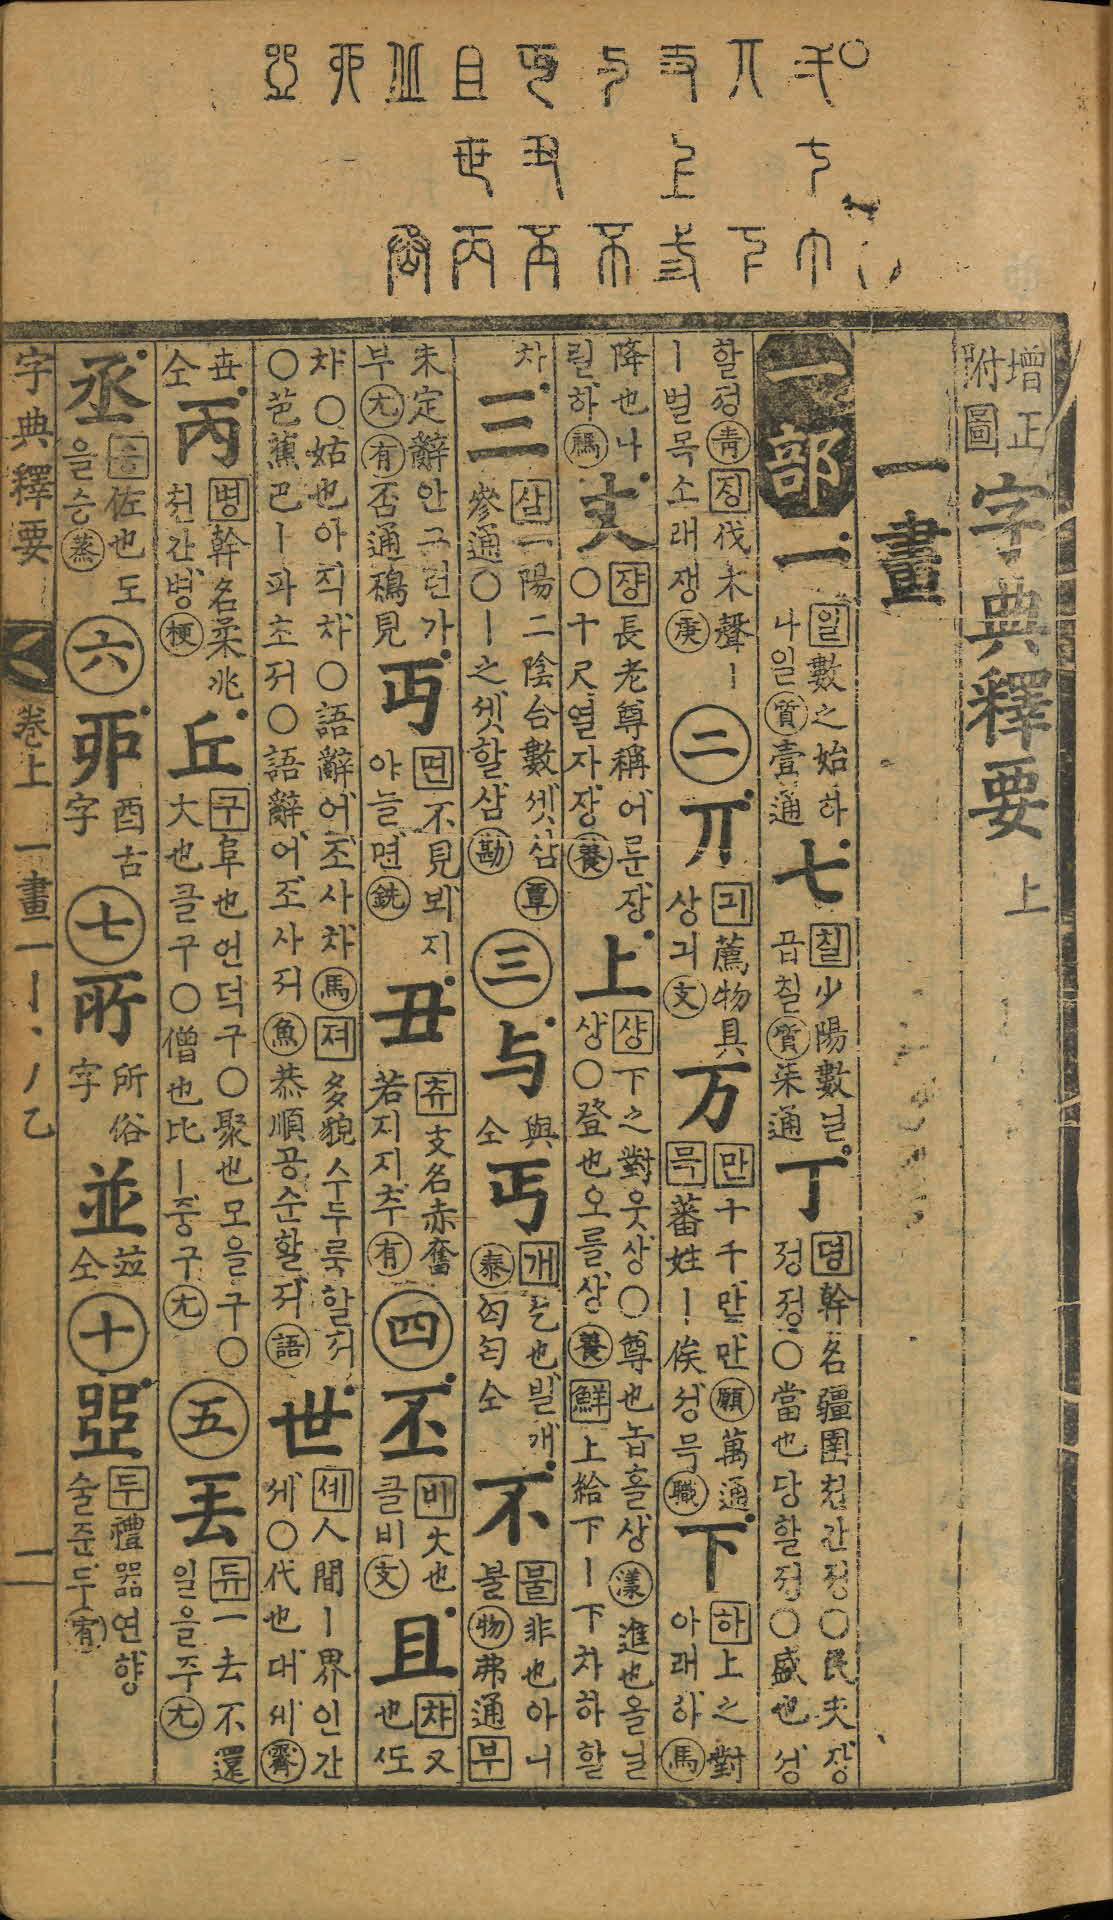 增正附圖 字典釋要 上
一畫
一部 一 일 數之始하나일 質 壹通 七 칠 少陽數닐곱칠 質 柒通 丁 뎡 幹名疆圉천간정○民夫장정정○當也당할정○盛也성
할정 靑 징 伐木聲丨丨벌목소래쟁 庚 二 丌 긔 薦物具상긔 支 万 만 十千만만 願 萬通 믁 蕃姓丨俟성믁 職 下 하 上之對아래하 馬
降也나릴하 禡 丈 쟝 長老尊稱어룬장○十尺열자장 養 上 샹 下之對웃상○尊也놉흘상 漾 進也올닐상○登也오를상 養 鮮 上給下丨下차하할
차 三 삼 一陽二陰合數셋삼 覃 參通○丨之셋할삼 勘 三 与 與仝 丐 개 乞也빌개 泰 匃匄仝 不 불 非也아니불 物 弗通 부
未定辭안그런가부 尤 有 否通鳺見 丏 면 不見뵈지아늘면 銑 丑 츄 支名赤奮若지지추 有 四 丕 비 大也클비 支 且 챠 又也또
차○姑也아직차○語辭어조사차 馬 져 多貌수두룩할저○芭蕉巴丨파초저○語辭어조사저 魚 恭順공순할저 語 世 셰 人間丨界인간세○代也대세 霽
丗仝 丙 병 幹名柔兆천간병 梗 丘 구 阜也언덕구○聚也모을구○大也클구○僧也比丨중구 尤 五 丟 듀 一去不還일을주 尤
丞 佐也도을승 蒸 六 丣 酉古字 七 所俗字 並 竝仝 十 두 禮器연향술준두 宥
字典釋要 卷上 一畫 一丨丶丿乙 一